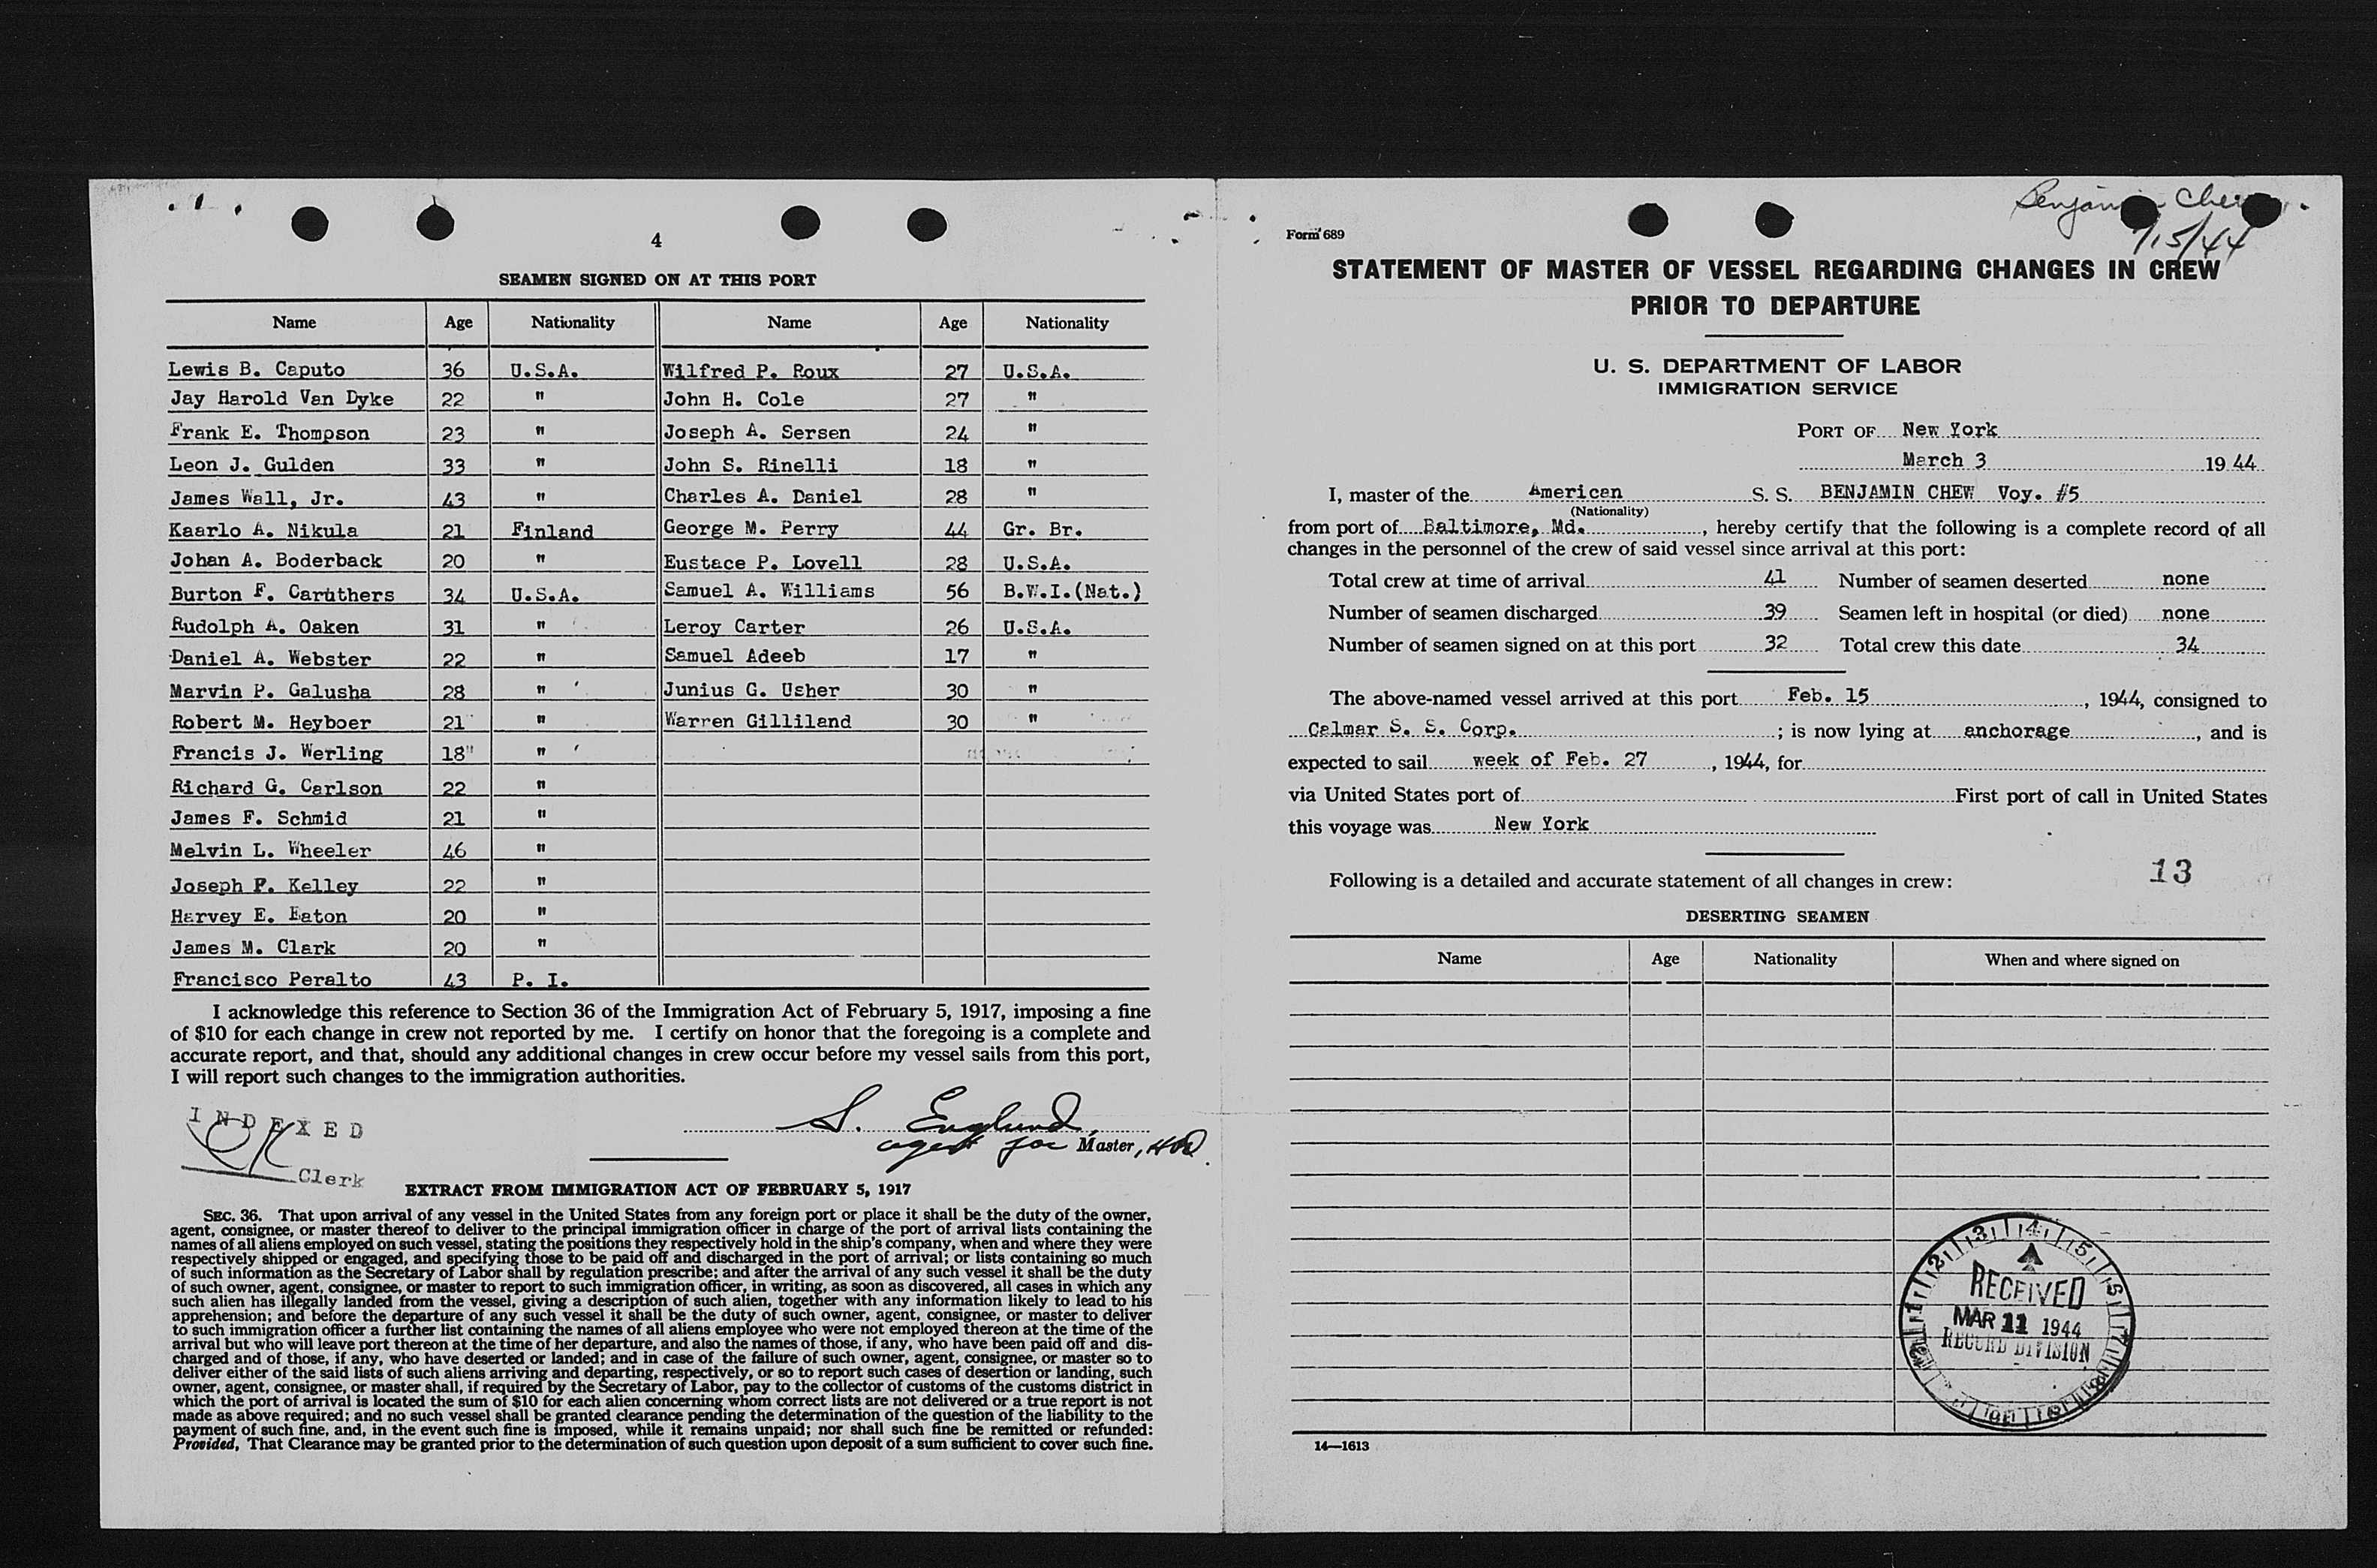 4
SEAMEN SIGNED ON AT THIS PORT
Name Age Nationality Name Age Nationality
Lewis B. Caputo 36 U.S.A. Wilfred P. Roux 27 U.S.A.
Jay Harold Van Dyke 22 " John H. Cole 27 "
Frank E. Thompson 23 " Joseph A. Sersen 24 "
Leon J. Gulden 33 " John S. Rinelli 18 "
James Wall, Jr. 43 " Charles A. Daniel 28 "
Kaarlo A. Nikula 21 Finland George M. Perry 44 Gr. Br.
Johan A. Boderback 20 " Eustace P. Lovell 28 U.S.A.
Burton F. Caruthers 34 U.S.A. Samuel A. Williams 56 B.W.I.(Nat.)
Rudolph A. Oaken 31 " Leroy Carter 26 U.S.A.
Daniel A. Webster 22 " Samuel Adeeb 17 "
Marvin P. Galusha 28 " Junius G. Usher 30 "
Robert M. Heyboer 21 " Warren Gilliland 30 "
Francis J. Werling 18 "
Richard G. Carlson 22 "
James F. Schmid 21 "
Melvin L. Wheeler 46 "
Joseph P. Kelley 22 "
Harvey E. Eaton 20 "
James M. Clark 20 "
Francisco Peralto 43 P. I.
I acknowledge this reference to Section 36 of the Immigration Act of February 5, 1917, imposing a fine
of $10 for each change in crew not reported by me. I certify on honor that the foregoing is a complete and
accurate report, and that, should any additional changes in crew occur before my vessel sails from this port,
I will report such changes to the immigration authorities.
INDEXED
Clerk
S. Englund
agent for Master,
EXTRACT FROM IMMIGRATION ACT OF FEBRUARY 5, 1917
SEC. 36. That upon arrival of any vessel in the United States from any foreign port or place it shall be the duty of the owner,
agent, consignee, or master thereof to deliver to the principal immigration officer in charge of the port of arrival lists containing the
names of all aliens employed on such vessel, stating the positions they respectively hold in the ship's company, when and where they were
respectively shipped or engaged, and specifying those to be paid off and discharged in the port of arrival; or lists containing so much
of such information as the Secretary of Labor shall by regulation prescribe; and after the arrival of any such vessel it shall be the duty
of such owner, agent, consignee, or master to report to such immigration officer, in writing, as soon as discovered, all cases in which any
such alien has illegally landed from the vessel, giving a description of such alien, together with any information likely to lead to his
apprehension; and before the departure of any such vessel it shall be the duty of such owner, agent, consignee, or master to deliver
to such immigration officer a further list containing the names of all aliens employee who were not employed thereon at the time of the
arrival but who will leave port thereon at the time of her departure, and also the names of those, if any, who have been paid off and dis-
charged and of those, if any, who have deserted or landed; and in case of the failure of such owner, agent, consignee, or master so to
deliver either of the said lists of such aliens arriving and departing, respectively, or so to report such cases of desertion or landing, such
owner, agent, consignee, or master shall, if required by the Secretary of Labor, pay to the collector of customs of the customs district in
which the port of arrival is located the sum of $10 for each alien concerning whom correct lists are not delivered or a true report is not
made as above required; and no such vessel shall be granted clearance pending the determination of the question of the liability to the
payment of such fine, and, in the event such fine is imposed, while it remains unpaid; nor shall such fine be remitted or refunded:
Provided, That Clearance may be granted prior to the determination of such question upon deposit of a sum sufficient to cover such fine.
Form 689
STATEMENT OF MASTER OF VESSEL REGARDING CHANGES IN CREW
PRIOR TO DEPARTURE
U. S. DEPARTMENT OF LABOR
IMMIGRATION SERVICE
PORT OF New York
March 3 1944
I, master of the American S. S. BENJAMIN CHEW Voy. #5
(Nationality)
from port of Baltimore, Md., hereby certify that the following is a complete record of all
changes in the personnel of the crew of said vessel since arrival at this port:
Total crew at time of arrival 41 Number of seamen deserted none
Number of seamen discharged 39 Seamen left in hospital (or died) none
Number of seamen signed on at this port 32 Total crew this date 34
The above-named vessel arrived at this port Feb. 15, 1944, consigned to
Calmar S. S. Corp.; is now lying at anchorage, and is
expected to sail week of Feb. 27, 1944, for
via United States port of First port of call in United States
this voyage was New York
13
Following is a detailed and accurate statement of all changes in crew:
DESERTING SEAMEN
Name Age Nationality When and where signed on
RECEIVED
MAR 11 1944
RECORD DIVISION
14—1613